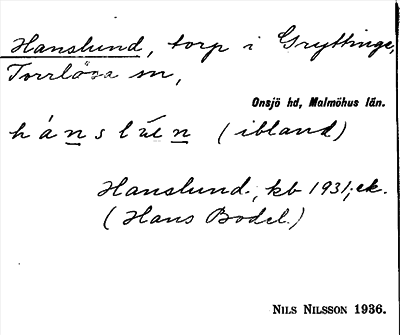 Hanslund, torp i Gryttinge,
Torrlösa sn,
Onsjö hd, Malmöhus län.
hánslùn (ibland)
Hanslund, kb 1931; ek.
(Hans Bodel.)
NILS NILSSON 1936.